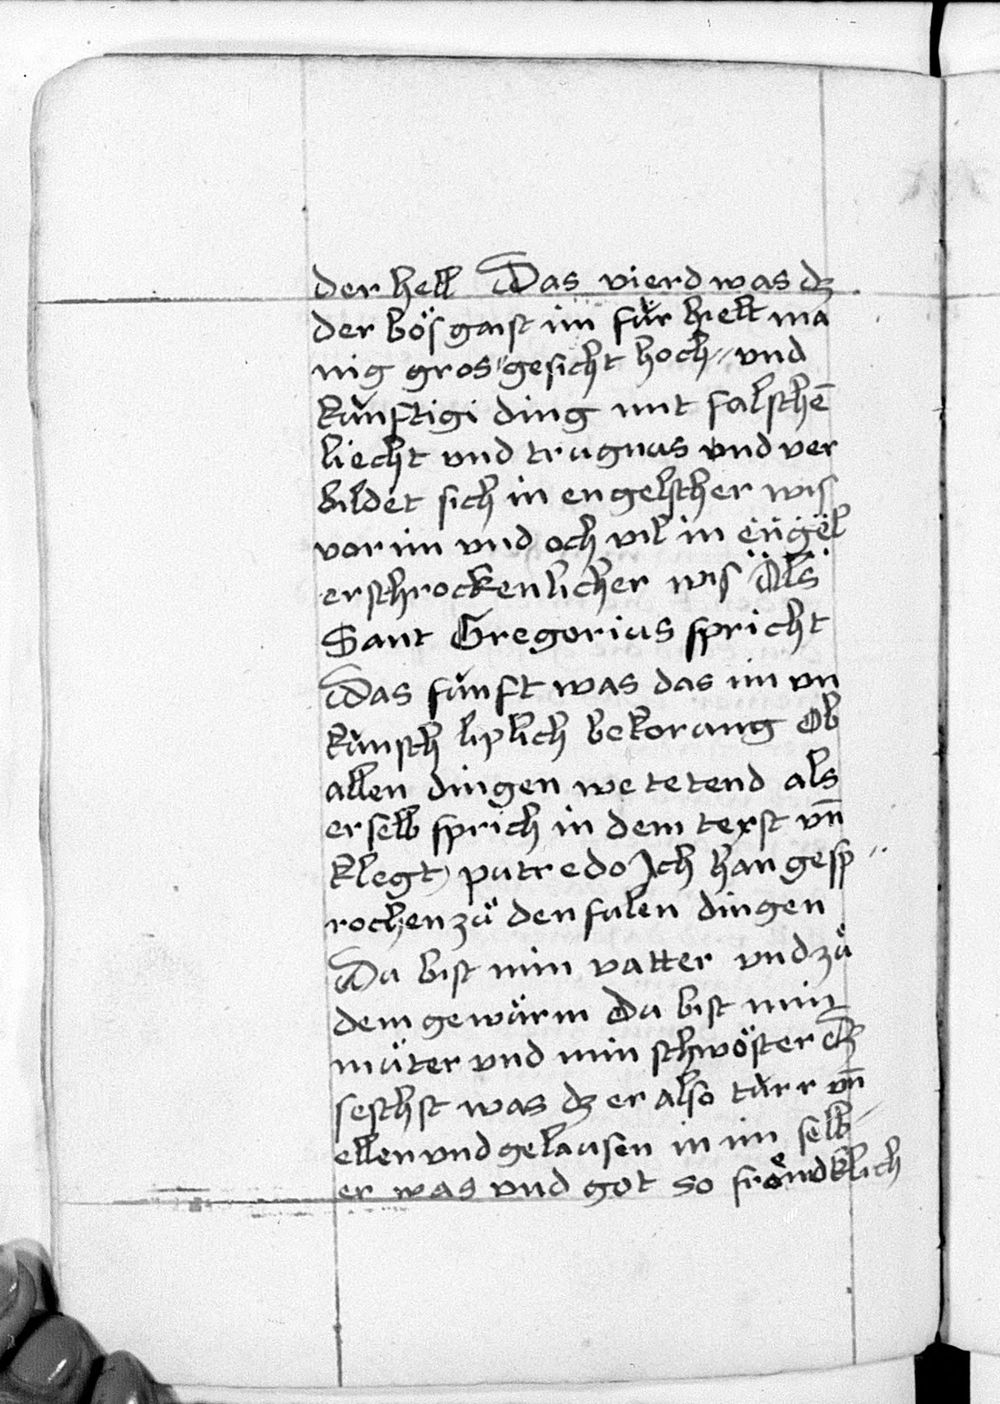 der hell Das vierd was dz
der bös gaist im für hielt ma
nig gros gesicht hoch vnd
künftigi ding mit falschē
liecht vnd trugnus vnd ver
bildet sich in engelscher wis
vor im vnd och vil in engel
erschrockenlicher wis Als
Sant Gregorius spricht
Das fünft was das im vn
künsch liplich bekorung Ob
allen dingen we tetend als
er selb sprich in dem text vn̄
klegt putredo Ich han gesp
rochen zů den fulen dingen
Du bist min vatter vnd zů
dem gewürm Du bist min
můter vnd min schwöster Dz
sechst was dz er also türr vn̄
ellen vnd gelausen in im selb
er was vnd got so frömdklich